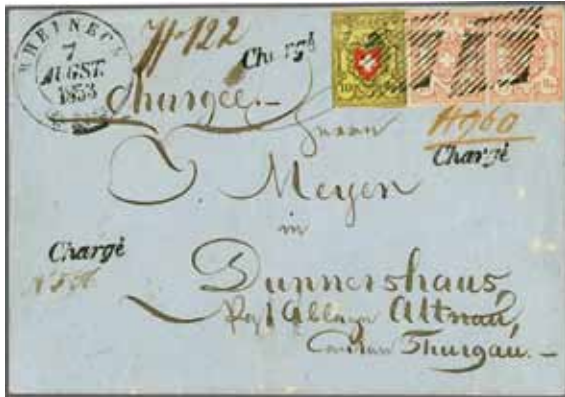 RHEINECK
7
AUGST.
1853
N 122
Chargé
Chargée.—
10
Herrn
N 960
Chargé
J. Meyer
in
Chargé
Dunnershaus,
Post Ablage Altnau,
Canton Thurgau.—